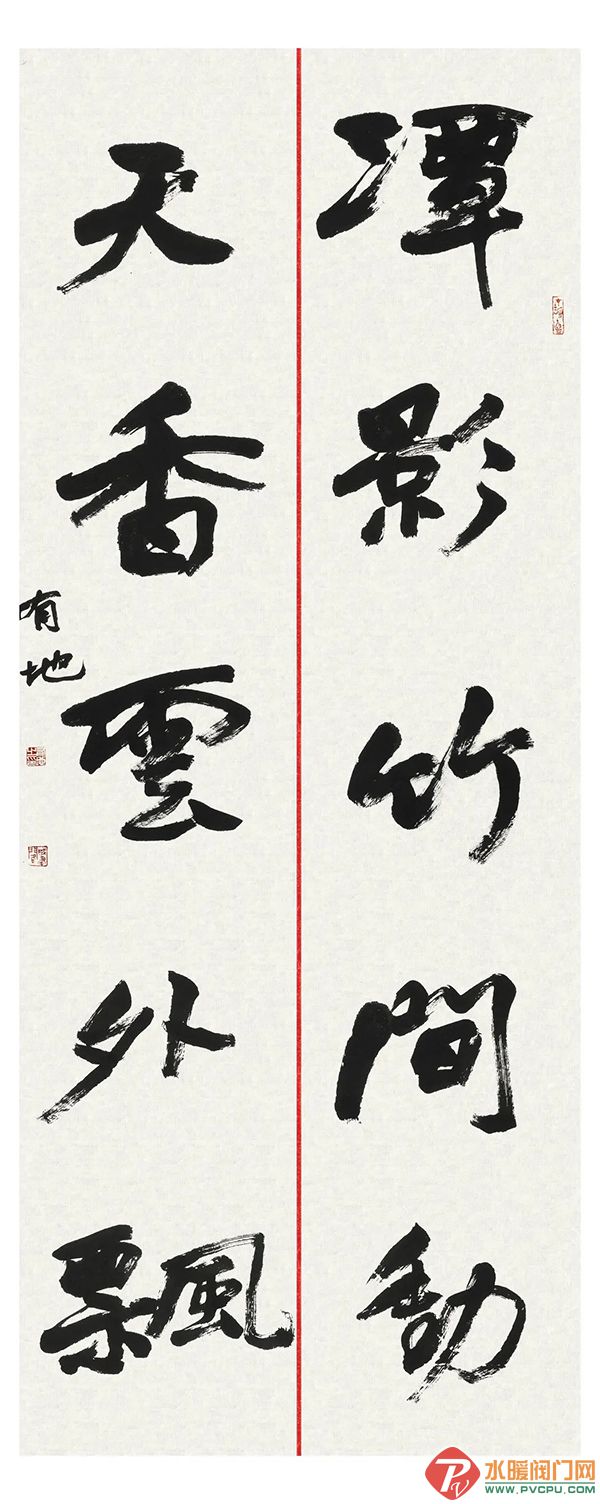 潭影竹間動
天香雲外飄
有地
水暖阀门网
WWW.PVCPU.COM